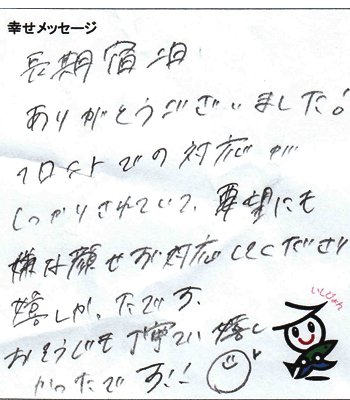 幸せメッセージ
長期宿泊
ありがとうございました!
フロントでの対応が
しっかりされていて、要望にも
嫌な顔せず対応してくださり
嬉しかったです。
おそうじも丁寧で嬉し
かったです!!
いしぴょん